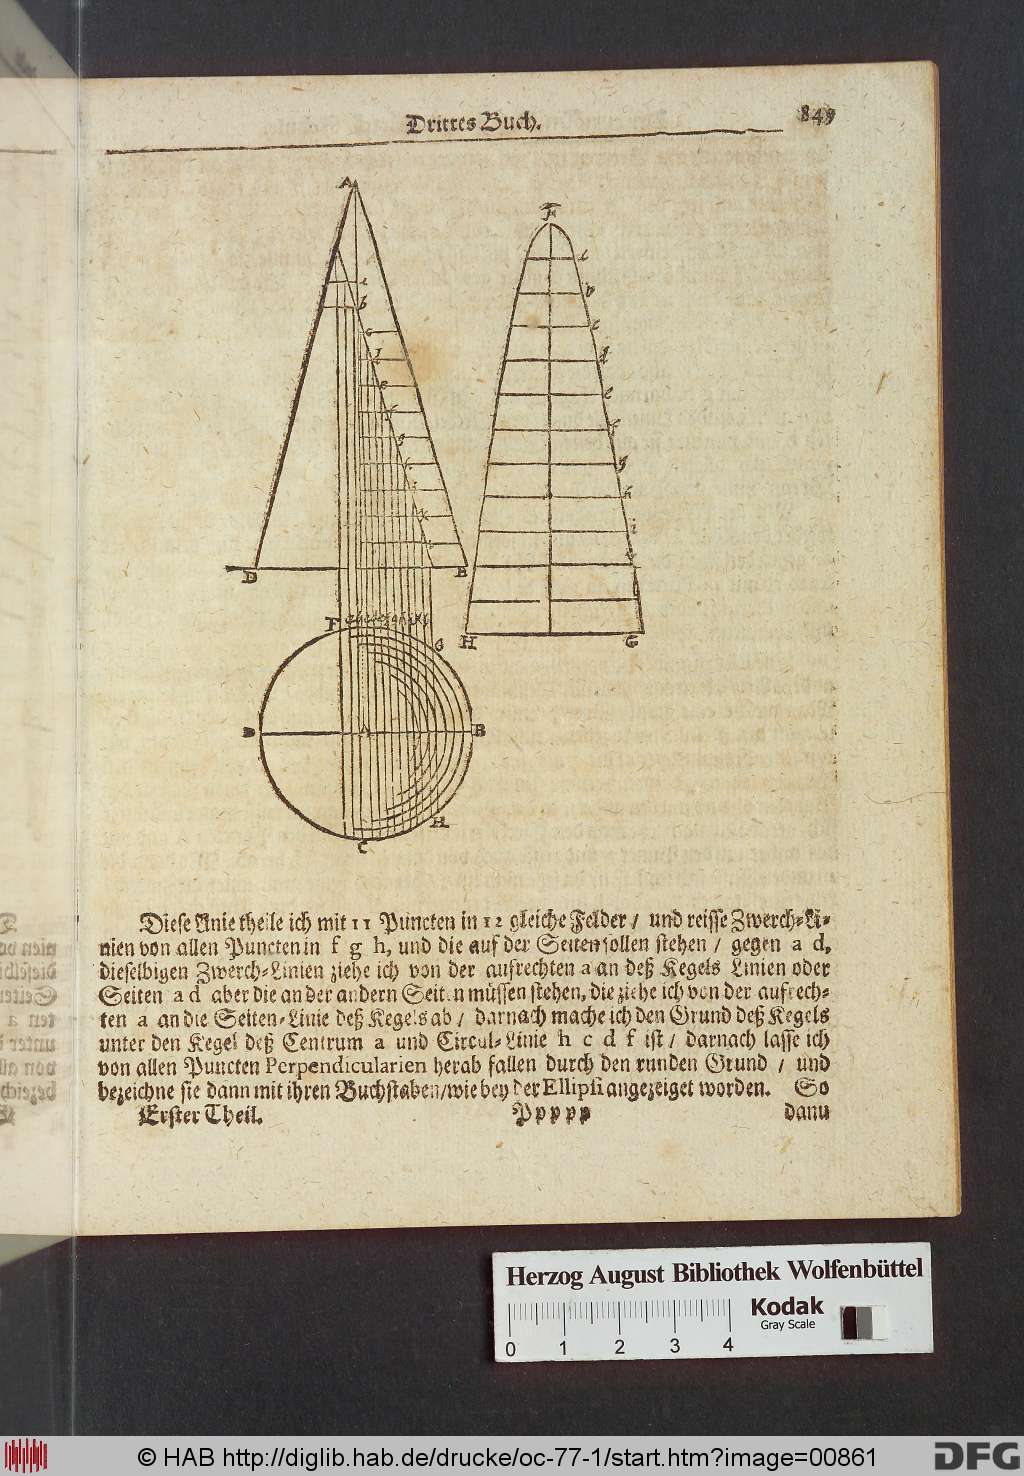 Drittes Buch. 849
A
F
a
b
c
d
e
f
g
h
i
k
l
D B
H G
F
G
D A B
H
C
Diese Linie theile ich mit 11 Puncten in 12 gleiche Felder / und reisse Zwerch-Li-
nien von allen Puncten in f g h, und die auf der Seiten sollen stehen / gegen a d,
dieselbigen Zwerch-Linien ziehe ich von der aufrechten a an deß Kegels Linien oder
Seiten a d aber die an der andern Seiten müssen stehen, die ziehe ich von der aufrech-
ten a an die Seiten-Linie deß Kegels ab / darnach mache ich den Grund deß Kegels
unter den Kegel deß Centrum a und Circul-Linie h c d f ist / darnach lasse ich
von allen Puncten Perpendicularien herab fallen durch den runden Grund / und
bezeichne sie dann mit ihren Buchstaben / wie bey der Ellipsi angezeiget worden. So
Erster Theil. Ppppp dann
Herzog August Bibliothek Wolfenbüttel
Kodak
Gray Scale
0 1 2 3 4
© HAB http://diglib.hab.de/drucke/oc-77-1/start.htm?image=00861
DFG